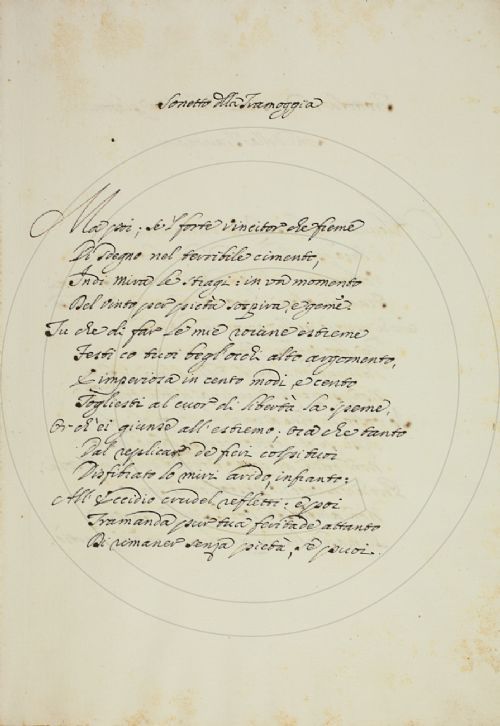 Sonetto della Tramoggia
Ma poi, se 'l forte vincitor che freme
Di sdegno nel terribile cimento,
Indi mira le stragi: in un momento
Del vinto per pietà sospira, e geme:
Tu che di far le mie rovine estreme
Festi co tuoi begl'occhi alto argomento,
E imperiosa in cento modi, e cento
Togliesti al cuor di libertà la speme.
Or ch'ei giunse all'estremo; ora che tanto
Dal replicar de fieri colpi tuoi
Disfibrato lo miri arido, infranto:
All'Eccidio crudel refletti: e poi
Tramanda pur tua feritade attanto
Di rimaner senza pietà, se puoi.